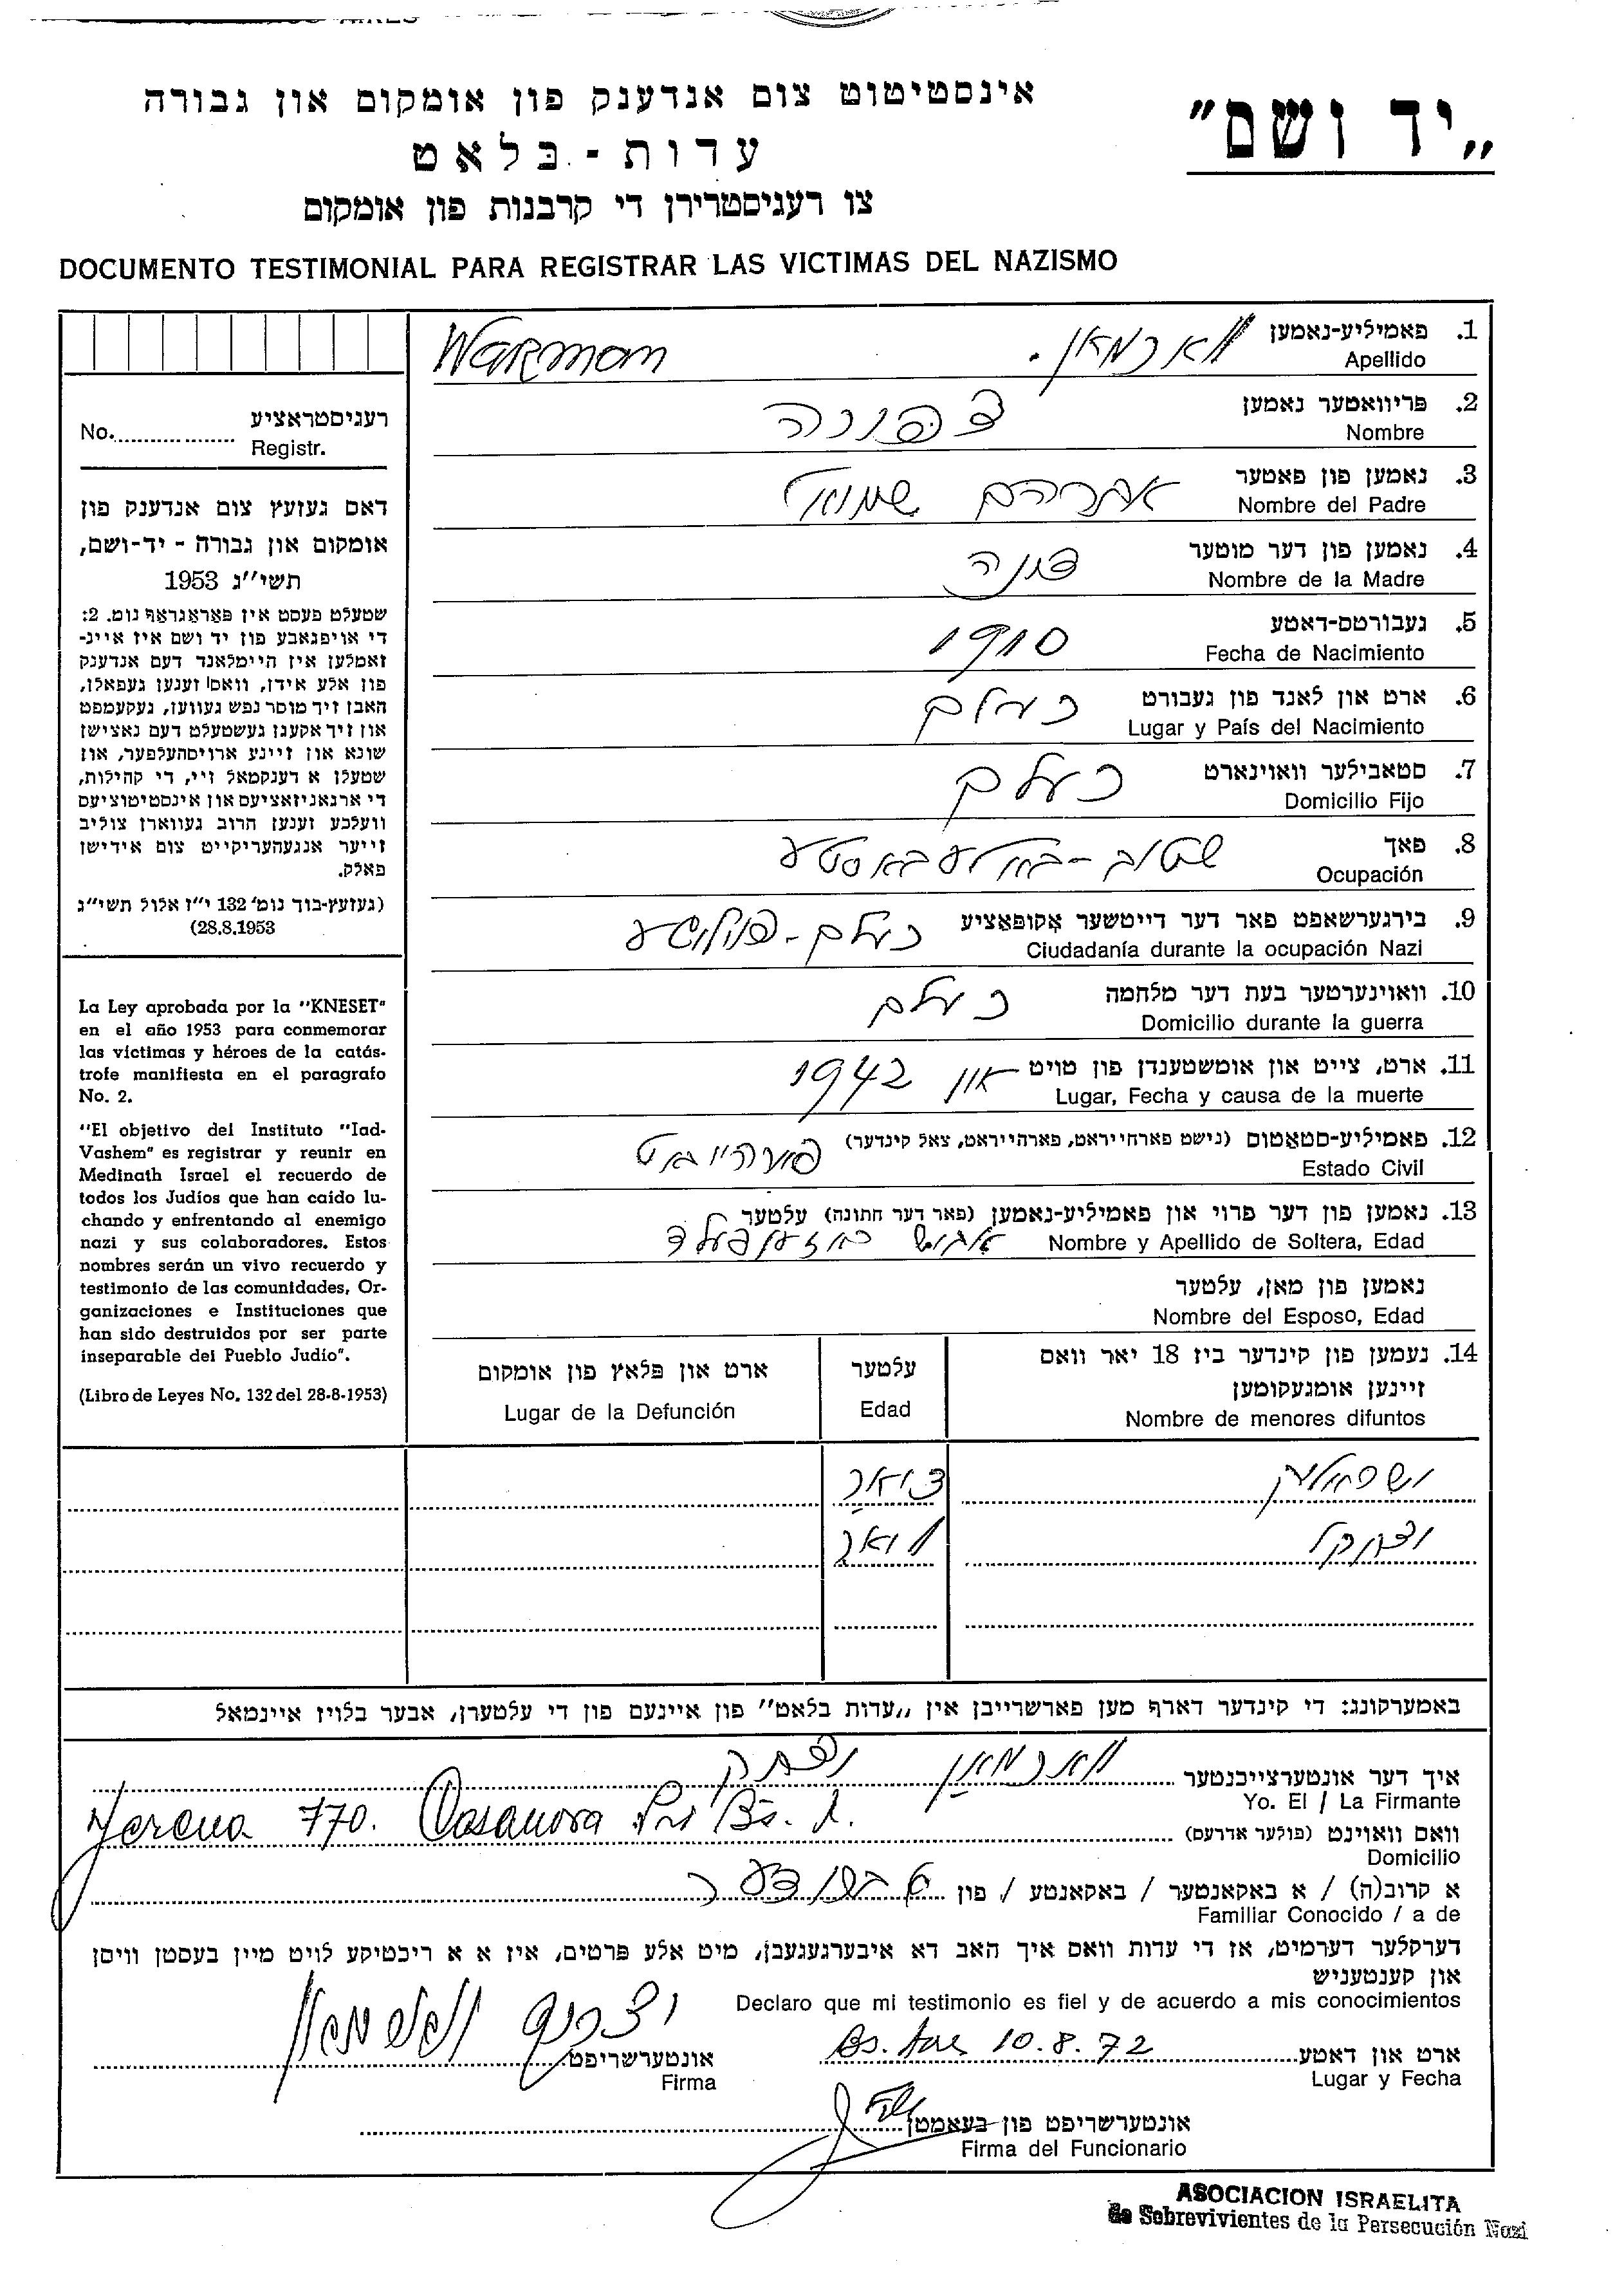 „יד ושם"
אינסטיטוט צום אנדענק פון אומקום און גבורה
עדות-בלאט
צו רעגיסטרירן די קרבנות פון אומקום
DOCUMENTO TESTIMONIAL PARA REGISTRAR LAS VICTIMAS DEL NAZISMO
1. פאמיליע-נאמען ווארמאן. Warman
Apellido
2. פריוואטער נאמען
Nombre
3. נאמען פון פאטער אברהם שמואל
Nombre del Padre
4. נאמען פון דער מוטער
Nombre de la Madre
5. געבורטס-דאטע 1910
Fecha de Nacimiento
6. ארט און לאנד פון געבורט כעלם
Lugar y País del Nacimiento
7. סטאבילער וואוינארט כעלם
Domicilio Fijo
8. פאך שטוב-באלעבאסטע
Ocupación
9. בירגערשאפט פאר דער דייטשער אָקופאציע כעלם-פוילישע
Ciudadanía durante la ocupación Nazi
10. וואוינערטער בעת דער מלחמה כעלם
Domicilio durante la guerra
11. ארט, צייט און אומשטענדן פון טויט און 1942
Lugar, Fecha y causa de la muerte
12. פאמיליע-סטאטוס (נישט פארחייראט, פארהייראט, צאל קינדער) פארהייראט
Estado Civil
13. נאמען פון דער פרוי און פאמיליע-נאמען (פאר דער חתונה) עלטער
Nombre y Apellido de Soltera, Edad ראזענפעלד
נאמען פון מאן, עלטער
Nombre del Esposo, Edad
14. נעמען פון קינדער ביז 18 יאר וואס
זיינען אומגעקומען
Nombre de menores difuntos
עלטער
Edad
ארט און פלאץ פון אומקום
Lugar de la Defunción
יאר
יאר
רעגיסטראציע
No. Registr.
דאס געזעץ צום אנדענק פון
אומקום און גבורה - יד-ושם,
תשי"ג 1953
שטעלט פעסט אין פאראגראף נומ. 2:
די אויפגאבע פון יד ושם איז איינ-
זאמלען אין היימלאנד דעם אנדענק
פון אלע אידן, וואס זענען געפאלן,
האבן זיך מוסר נפש געווען, געקעמפט
און זיך אקעגן געשטעלט דעם נאצישן
שונא און זיינע ארויסהעלפער, און
שטעלן א דענקמאל זיי, די קהילות,
די ארגאניזאציעס און אינסטיטוציעס
וועלכע זענען חרוב געווארן צוליב
זייער אנגעהעריקייט צום אידישן
פאלק.
(געזעץ-בוך נומ' 132 י"ז אלול תשי"ג
28.8.1953)
La Ley aprobada por la "KNESET"
en el año 1953 para conmemorar
las víctimas y héroes de la catás-
trofe manifiesta en el paragrafo
No. 2.
"El objetivo del Instituto "Iad-
Vashem" es registrar y reunir en
Medinath Israel el recuerdo de
todos los Judíos que han caído lu-
chando y enfrentando al enemigo
nazi y sus colaboradores. Estos
nombres serán un vivo recuerdo y
testimonio de las comunidades, Or-
ganizaciones e Instituciones que
han sido destruidos por ser parte
inseparable del Pueblo Judío".
(Libro de Leyes No. 132 del 28-8-1953)
באמערקונג: די קינדער דארף מען פארשרייבן אין „עדות בלאט" פון איינעם פון די עלטערן, אבער בלויז איינמאל
איך דער אונטערצייכנטער ווארמאן יצחק
Yo. El / La Firmante
770. Casanova Bs.
וואס וואוינט (פולער אדרעס)
Domicilio
א קרוב(ה) / א באקאנטער / באקאנטע / פון
Familiar Conocido / a de
דערקלער דערמיט, אז די עדות וואס איך האב דא איבערגעגעבן, מיט אלע פרטים, איז א א ריכטיקע לויט מיין בעסטן וויסן
און קענטעניש
Declaro que mi testimonio es fiel y de acuerdo a mis conocimientos
ארט און דאטע Bs. Aires 10.8.72
Lugar y Fecha
אונטערשריפט
Firma
אונטערשריפט פון בעאמטן
Firma del Funcionario
ASOCIACION ISRAELITA
de Sobrevivientes de la Persecución Nazi